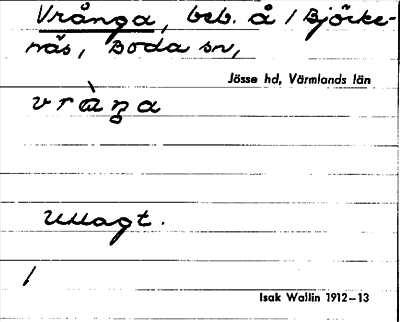 Vrånga, beb. å / Björke-
näs, Boda sn,
Jösse hd, Värmlands län
vràŋa
Uttagt.
/
Isak Wallin 1912–13